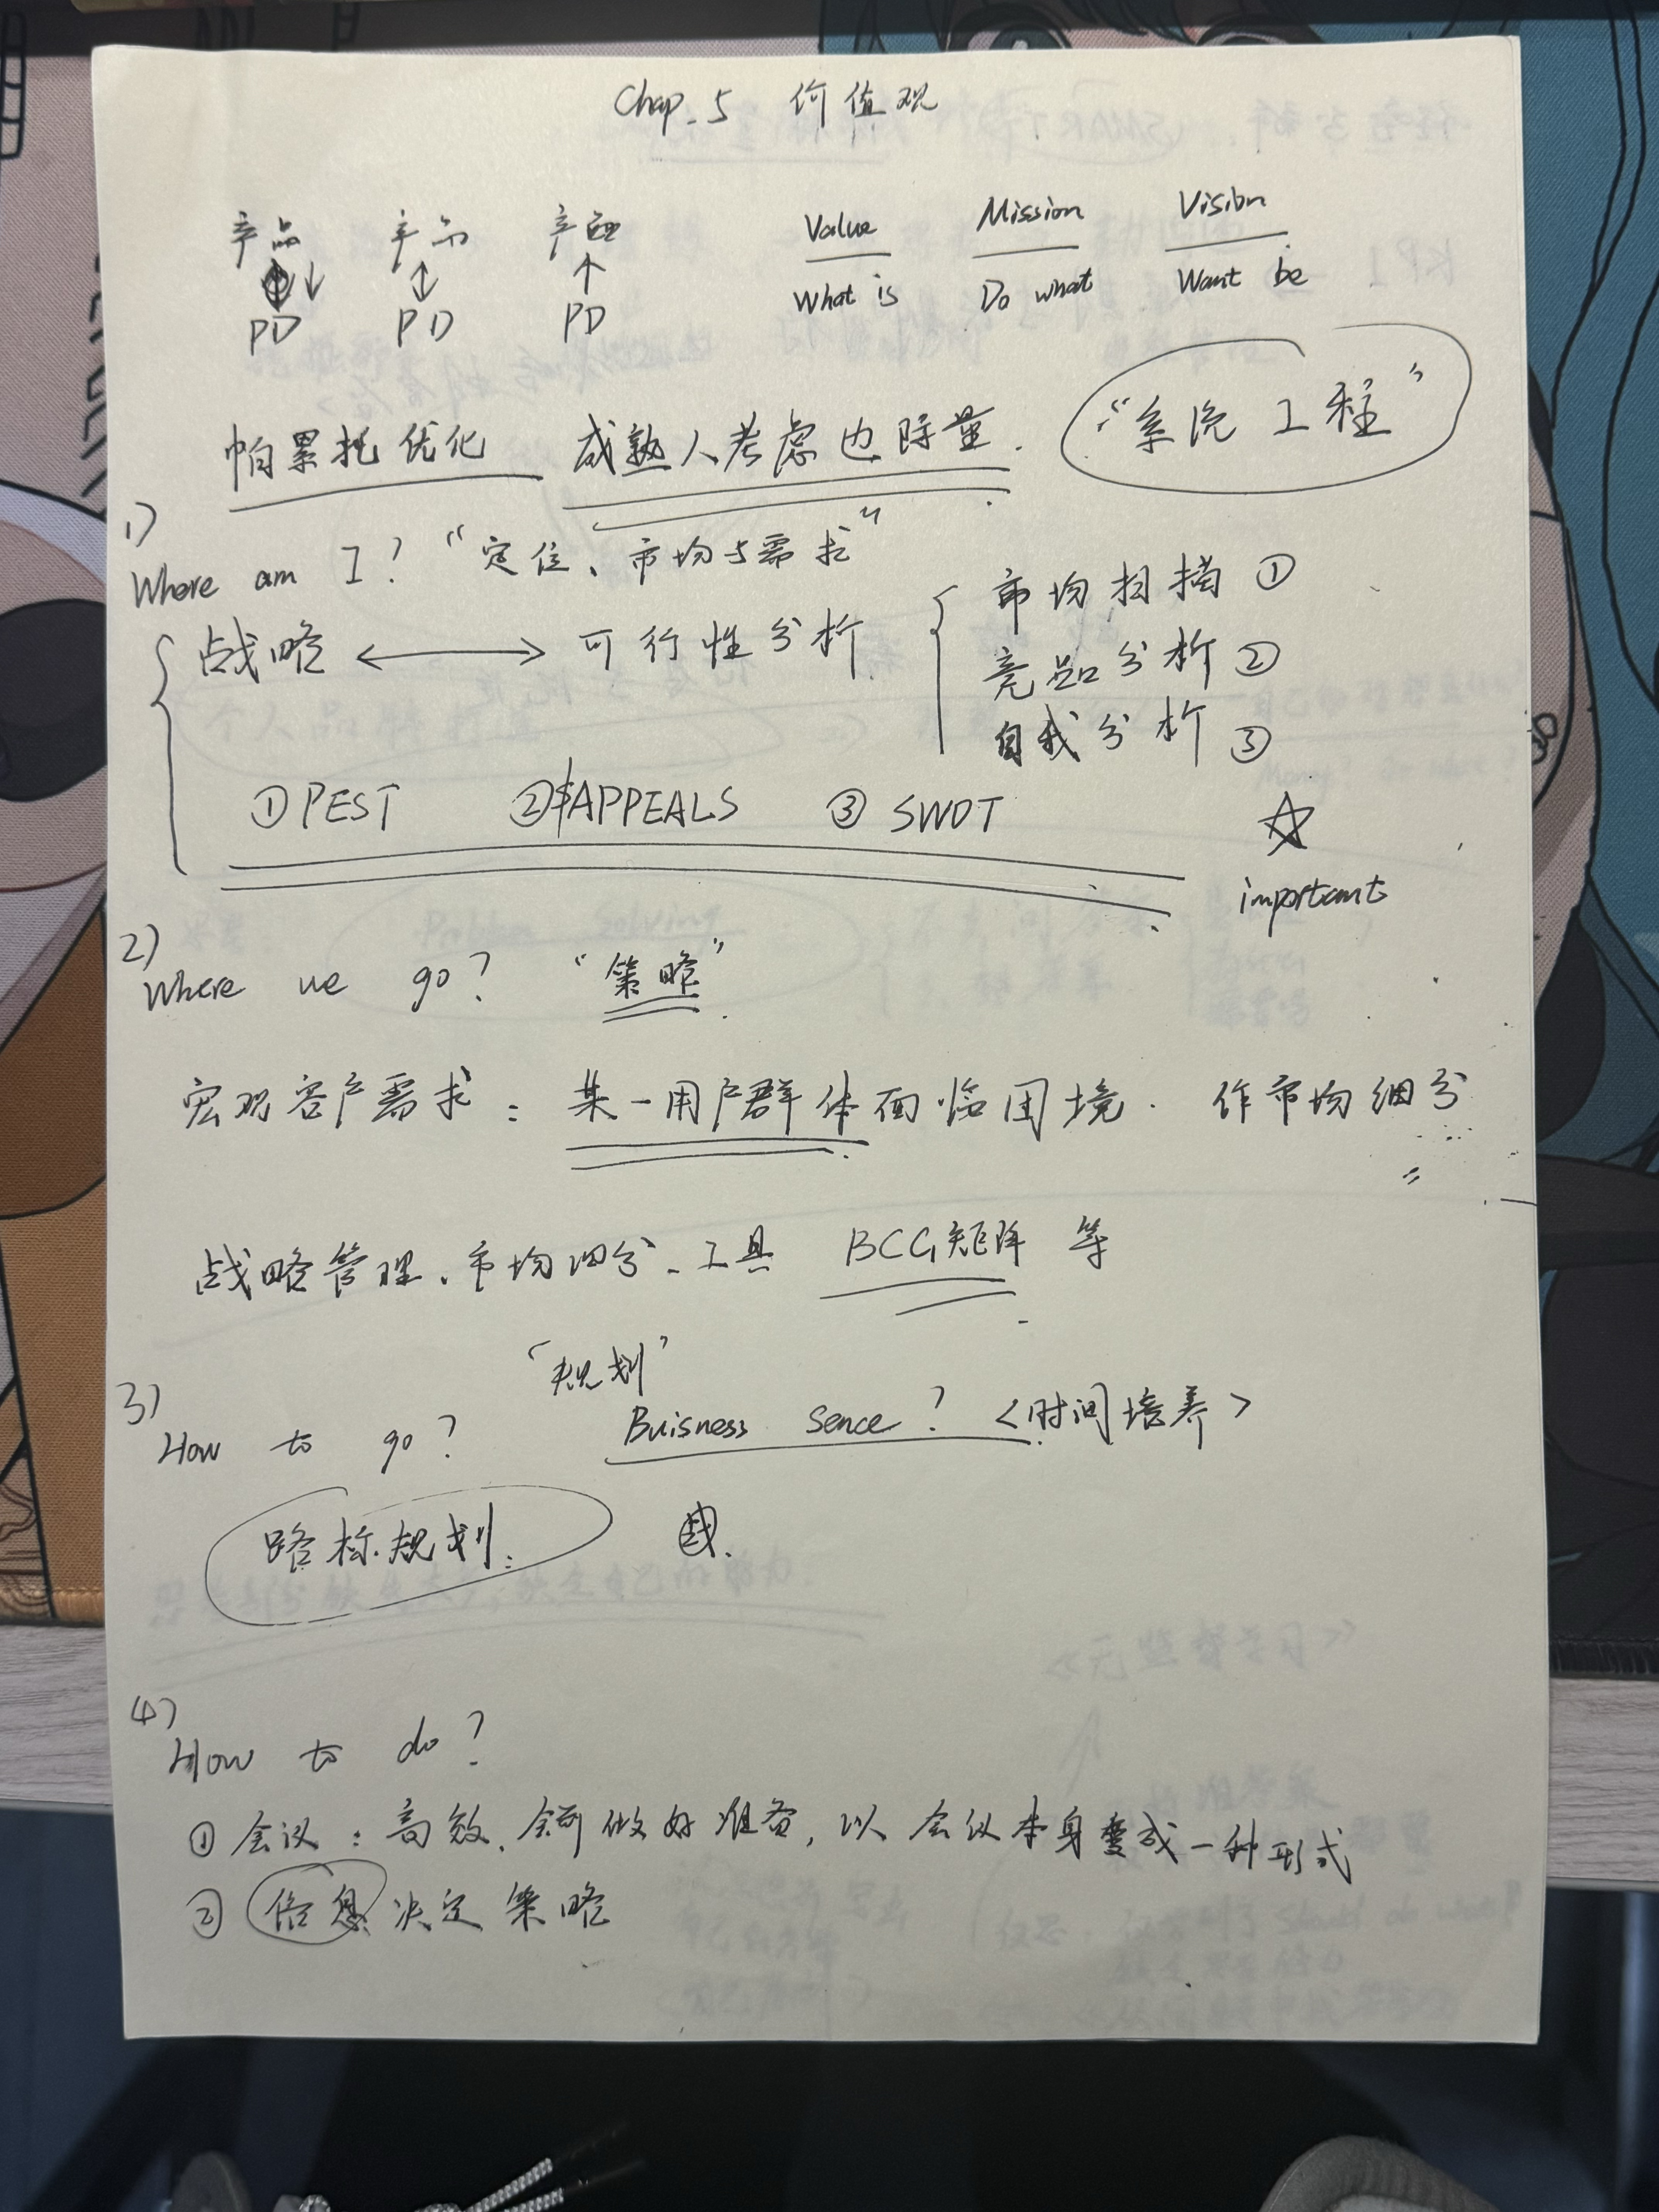 Chap. 5 价值观
产品 产品 产品 Value Mission Vision
↓ ↕ ↑
PD PD PD What is Do what Want be
帕累托优化 成熟人考虑边际量. “系统工程”
1)
Where am I? “定位、市场与需求”
战略 ⟷ 可行性分析
市场扫描 ①
竞品分析 ②
自我分析 ③
①PEST ②$APPEALS ③ SWOT ☆
important
2)
Where we go? “策略”
宏观客户需求: 某一用户群体面临困境. 作市场细分
战略管理、市场细分、工具 BCG矩阵 等
“规划”
3)
How to go? Buisness Sence? <时间培养>
路标规划.
4)
How to do?
① 会议: 高效、会前做好准备, 以会议本身变成一种形式
② 信息决定策略